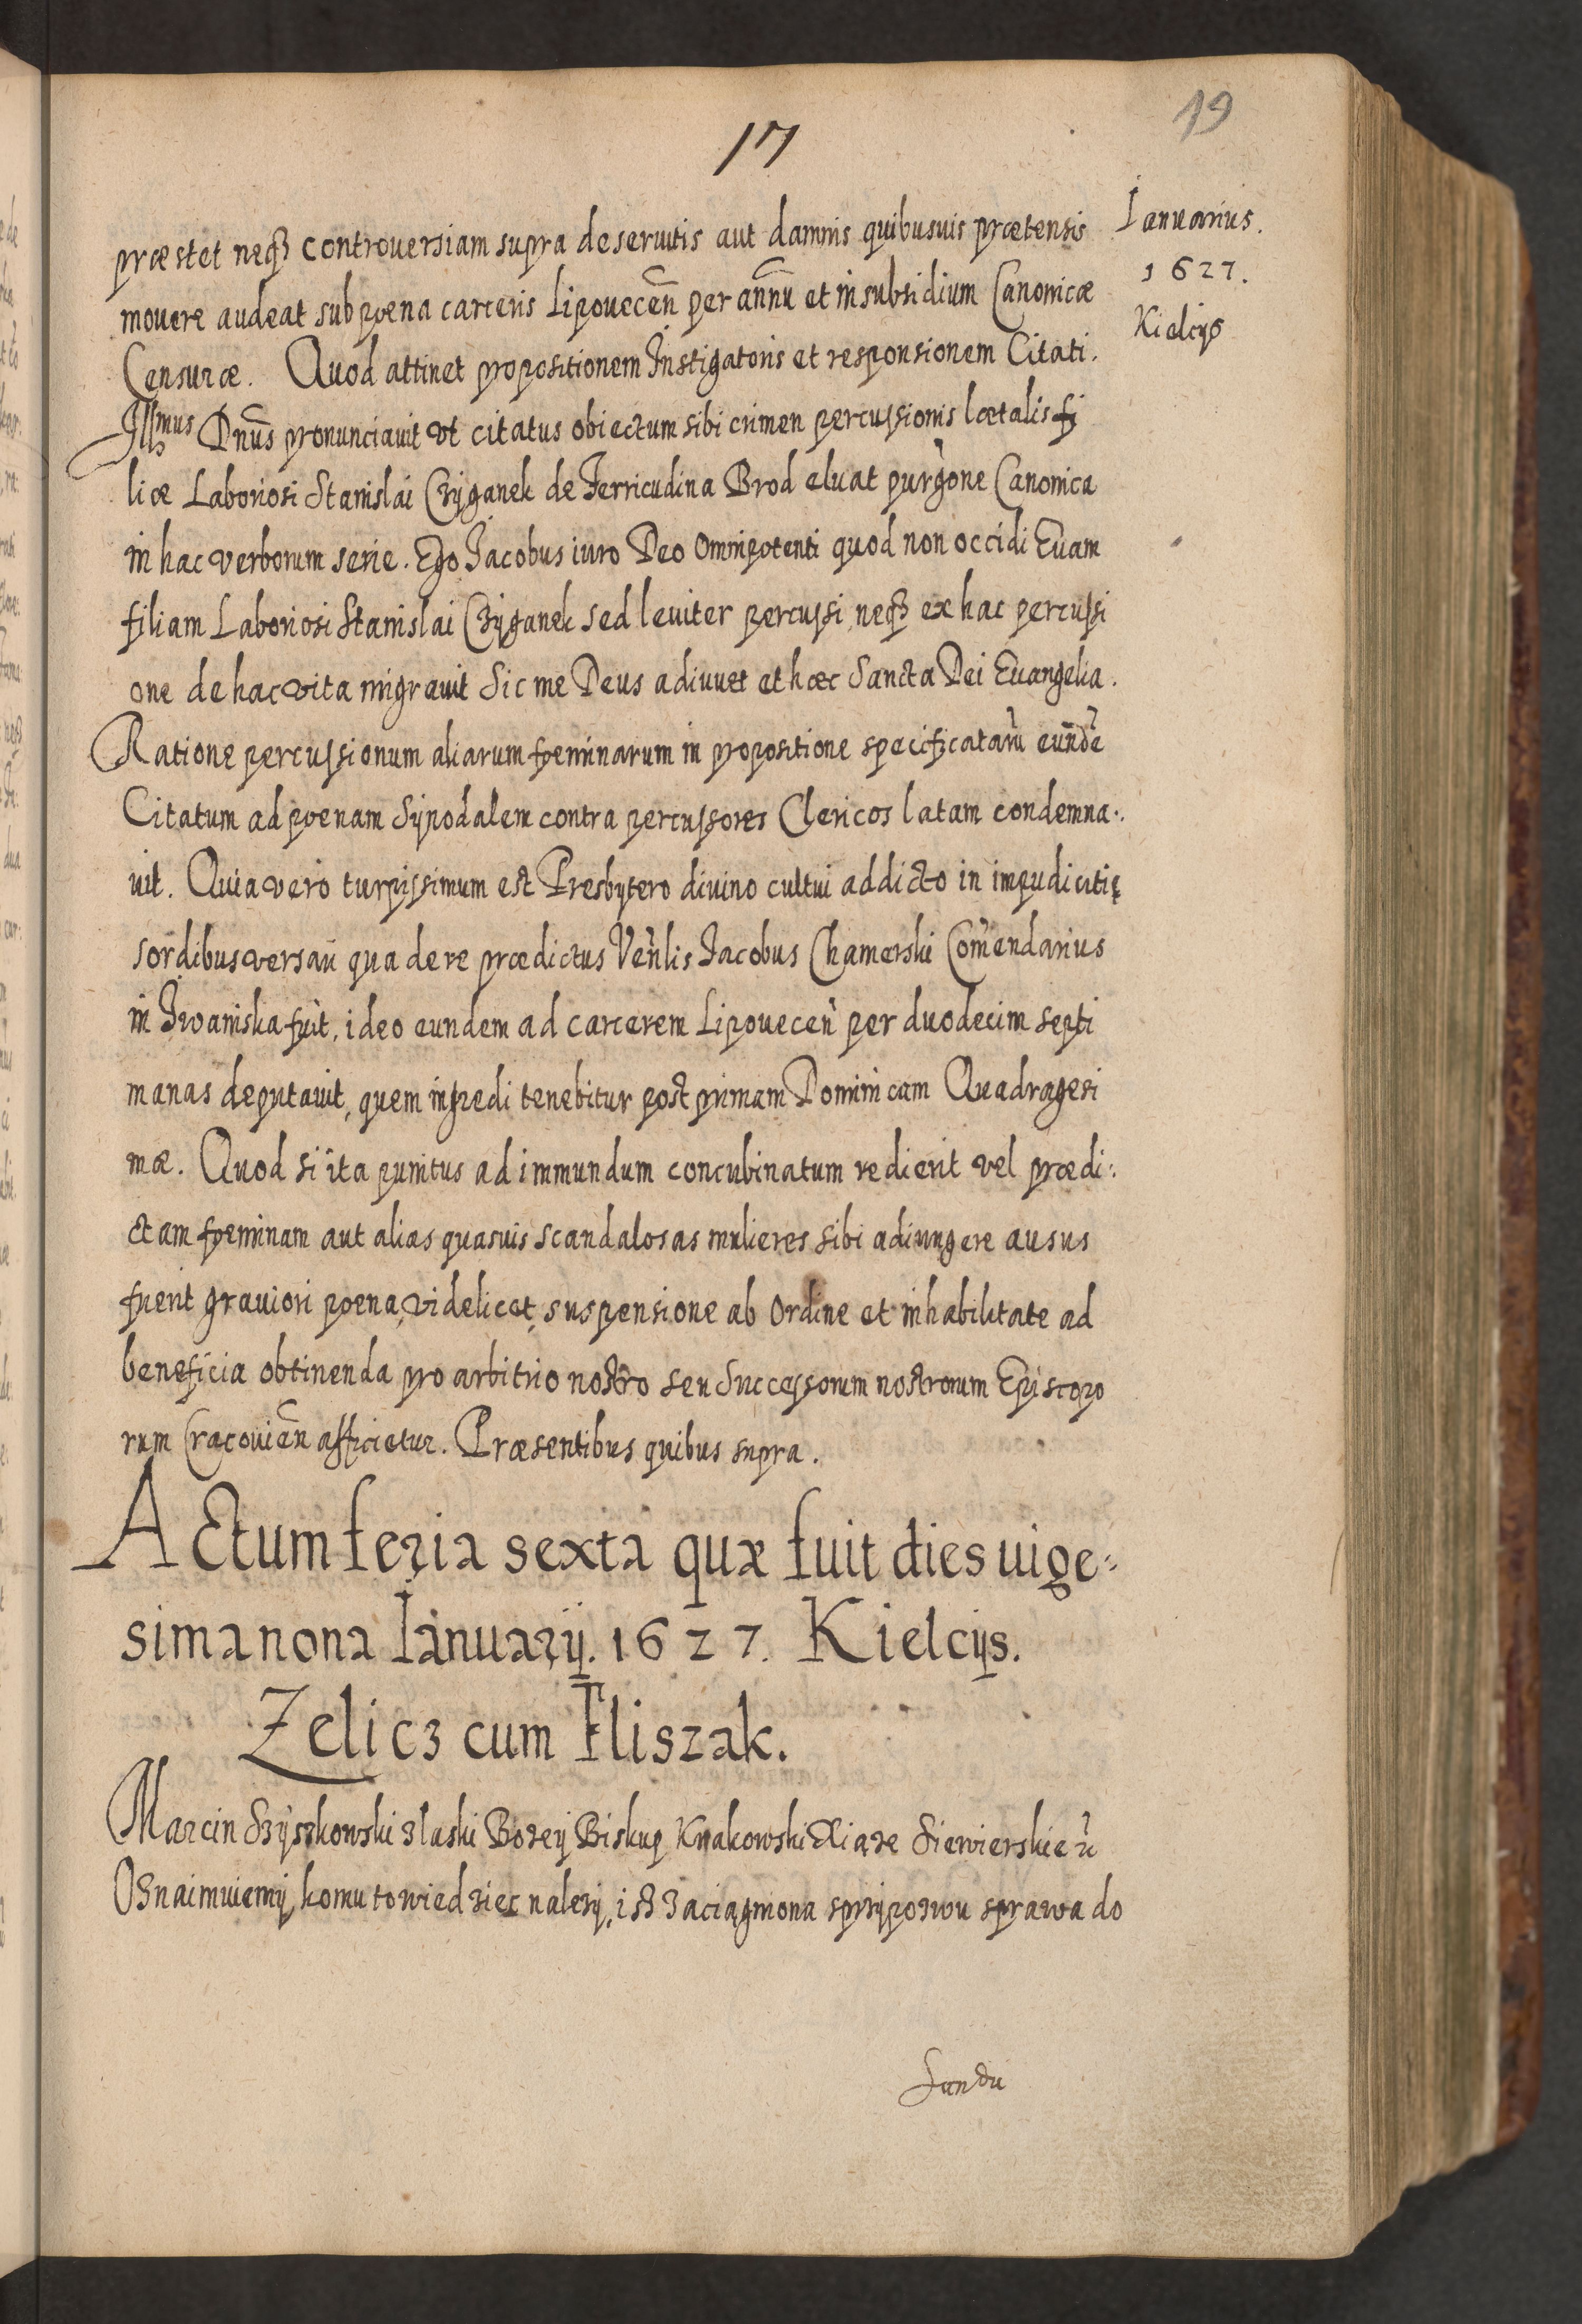 19
17
Ianuarius.
1627.
Kielcijs
præstet neqȝ controuersiam supra deseruitis aut damnis quibusuis prætensis
mouere audeat sub pœna carceris Lipouecen̄ per annu et in subsidium Canonicæ
Censuræ. Quod attinet propositionem Instigatoris et responsionem Citati.
Illsmus Dnus pronunciauit vt citatus obiectum sibi crimen percussionis lætalis fi
liæ Laboriosi Stanislai Czÿganek de Brod eluat purgone Canonica
in hac verborum serie. Ego Iacobus iuro Deo Omnipotenti quod non occidi Euam
filiam Laboriosi Stanislai Czÿganek sed leuiter percussi, neqȝ ex hac percussi
one de hac vita migrauit Sic me Deus adiuuet et hæc Sancta Dei Euangelia.
Ratione percussionum aliarum fœminarum in propositione specificatarū eundē
Citatum ad pœnam Sÿnodalem contra percussores Clericos latam condemna:
uit. Quia vero turpissimum est Presbÿtero diuino cultui addicto in impudicitię
sordibus versari qua de re prædictus Venlis Iacobus Chamerski Comendarius
in Iwaniska fuit, ideo eundem ad carcerem Lipouecen̄ per duodecim septi
manas deputauit, quem ingredi tenebitur post primam Dominicam Quadragesi
mæ. Quod si ita punitus ad immundum concubinatum redierit vel prædi:
ctam fœminam aut alias quasuis scandalosas mulieres sibi adiungere ausus
fuerit grauiori pœna, videlicet, suspensione ab Ordine et inhabilitate ad
beneficia obtinenda pro arbitrio nostro seu Successorum nostrorum Episcopo
rum Cracouien̄ afficietur. Præsentibus quibus supra.
Actum feria sexta quæ fuit dies uige-
sima nona Ianuarij. 1627. Kielcijs.
Zelicz cum Fliszak.
Marcin Szÿszkowski z laski Bozeÿ Biskup Krakowski Xiąze Siewierskie &c
Oznaimuiemÿ, komu to wiedziec nalezÿ, iss zaciągniona sprzÿpozwu sprawa do
Sandu